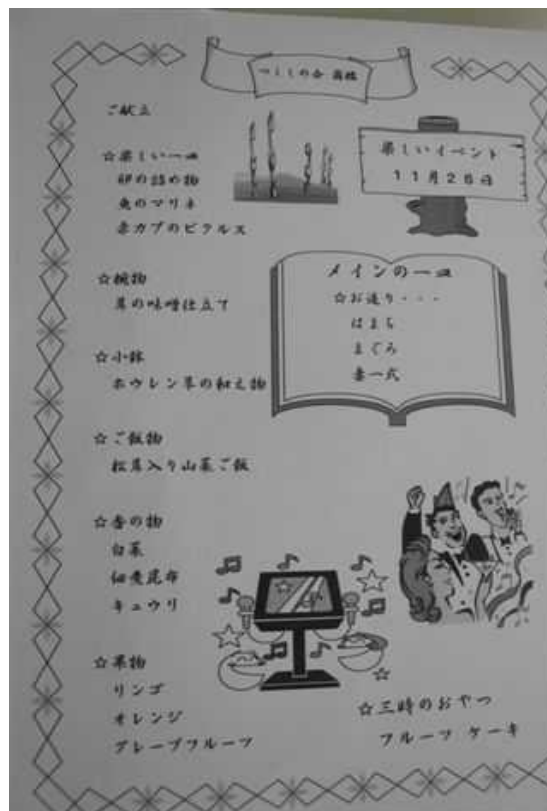 つくしの会
ご献立
☆楽しい一皿
卵の詰め物
魚のマリネ
赤カブのピクルス
☆椀物
茸の味噌仕立て
☆小鉢
ホウレン草の和え物
☆ご飯物
松茸入り山菜ご飯
☆香の物
白菜
佃煮昆布
キュウリ
☆果物
リンゴ
オレンジ
グレープフルーツ
楽しいイベント
11月26日
メインの一皿
☆お造り・・・
はまち
まぐろ
妻一式
☆三時のおやつ
フルーツ ケーキ